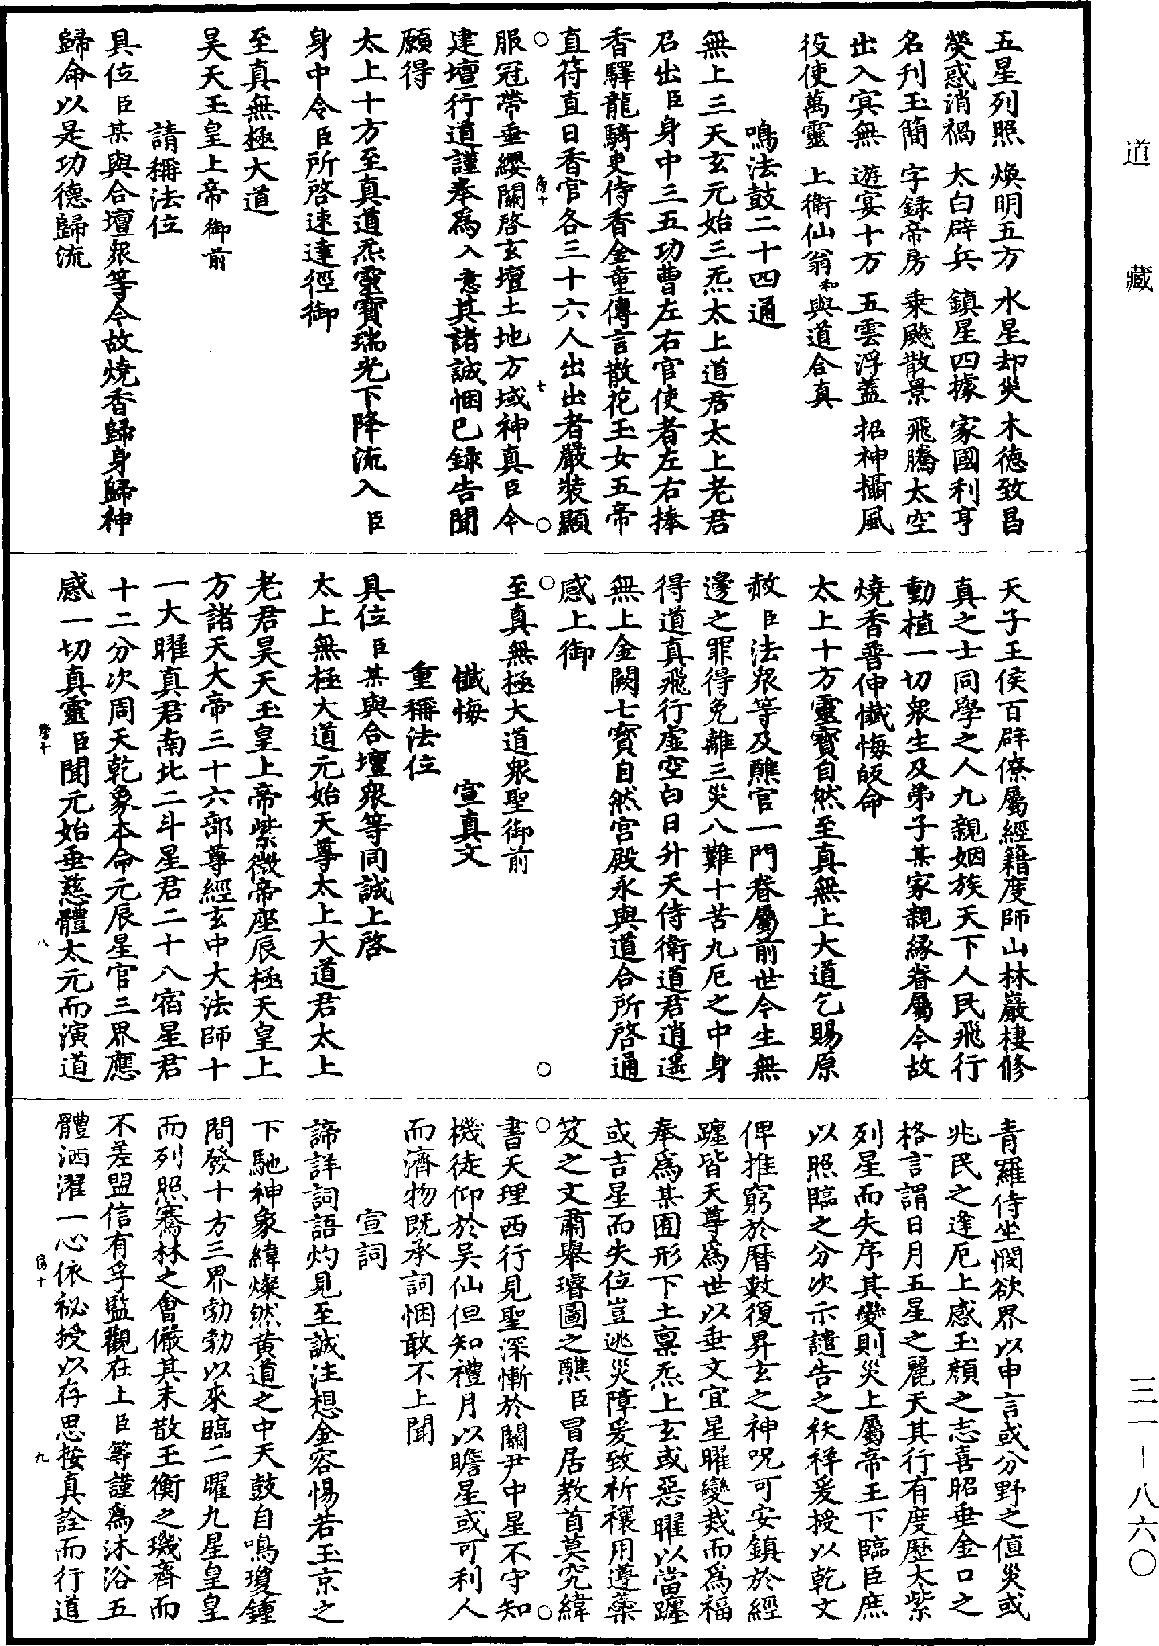 道藏
三一－八六〇
五星列照　煥明五方　水星却災　木德致昌
熒惑消禍　太白辟兵　鎮星四據　家國利亨
名刋玉簡　字錄帝房　乘飈散景　飛騰太空
出入冥無　遊宴十方　五雲浮蓋　招神攝風
役使萬靈　上衛仙翁和與道合真
鳴法鼓二十四通
無上三天玄元始三炁太上道君太上老君
召出臣身中三五功曹左右官使者左右捧
香驛龍騎吏侍香金童傳言散花玉女五帝
直符直日香官各三十六人出出者嚴裝顯
服冠帶垂纓關啓玄壇土地方域神真臣今
建壇行道謹奉爲入意其諸誠悃已錄告聞
願得
太上十方至真道炁靈寶瑞光下降流入臣
身中令臣所啓速達徑御
至真無極大道
昊天玉皇上帝御前
請稱法位
具位臣某與合壇衆等今故燒香歸身歸神
歸命以是功德歸流
天子王侯百辟僚屬經籍度師山林巖棲修
真之士同學之人九親姻族天下人民飛行
動植一切衆生及弟子某家親緣眷屬今故
燒香普伸懺悔皈命
太上十方靈寶自然至真無上大道乞賜原
赦臣法衆等及醮官一門眷屬前世今生無
邊之罪得免離三災八難十苦九厄之中身
得道真飛行虛空白日升天侍衛道君逍遥
無上金闕七寶自然宫殿永與道合所啓通
感上御
至真無極大道衆聖御前
懺悔　宣真文
重稱法位
具位臣某與合壇衆等同誠上啓
太上無極大道元始天尊太上大道君太上
老君昊天玉皇上帝紫微帝座辰極天皇上
方諸天大帝三十六部尊經玄中大法師十
一大曜真君南北二斗星君二十八宿星君
十二分次周天乾象本命元辰星官三界應
感一切真靈臣聞元始垂慈體太元而演道
青羅侍坐憫欲界以申言或分野之值災或
兆民之逢厄上感玉顏之志喜昭垂金口之
格言謂日月五星之麗天其行有度歷太紫
列星而失序其變則災上屬帝王下臨臣庶
以照臨之分次示譴告之祅祥爰授以乾文
俾推窮於曆數復昇玄之神呪可安鎮於經
躔皆天尊爲世以垂文宜星曜變烖而爲福
奉爲某囿形下土禀炁上玄或惡曜以當躔
或吉星而失位豈逃災障爰致祈禳用遵蘂
笈之文肅舉璿圖之醮臣冒居教首莫究緯
書天理西行見聖深慚於關尹中星不守知
機徒仰於吴仙但知禮月以瞻星或可利人
而濟物既承詞悃敢不上聞
宣詞
諦詳詞語灼見至誠注想金容惕若玉京之
下馳神象緯燦然黄道之中天鼓自鳴瓊鍾
間發十方三界勃勃以來臨二曜九星皇皇
而列照騫林之會儼其未散玉衡之璣齊而
不差盟信有孚監觀在上臣等謹爲沐浴五
體洒濯一心依祕授以存思按真詮而行道